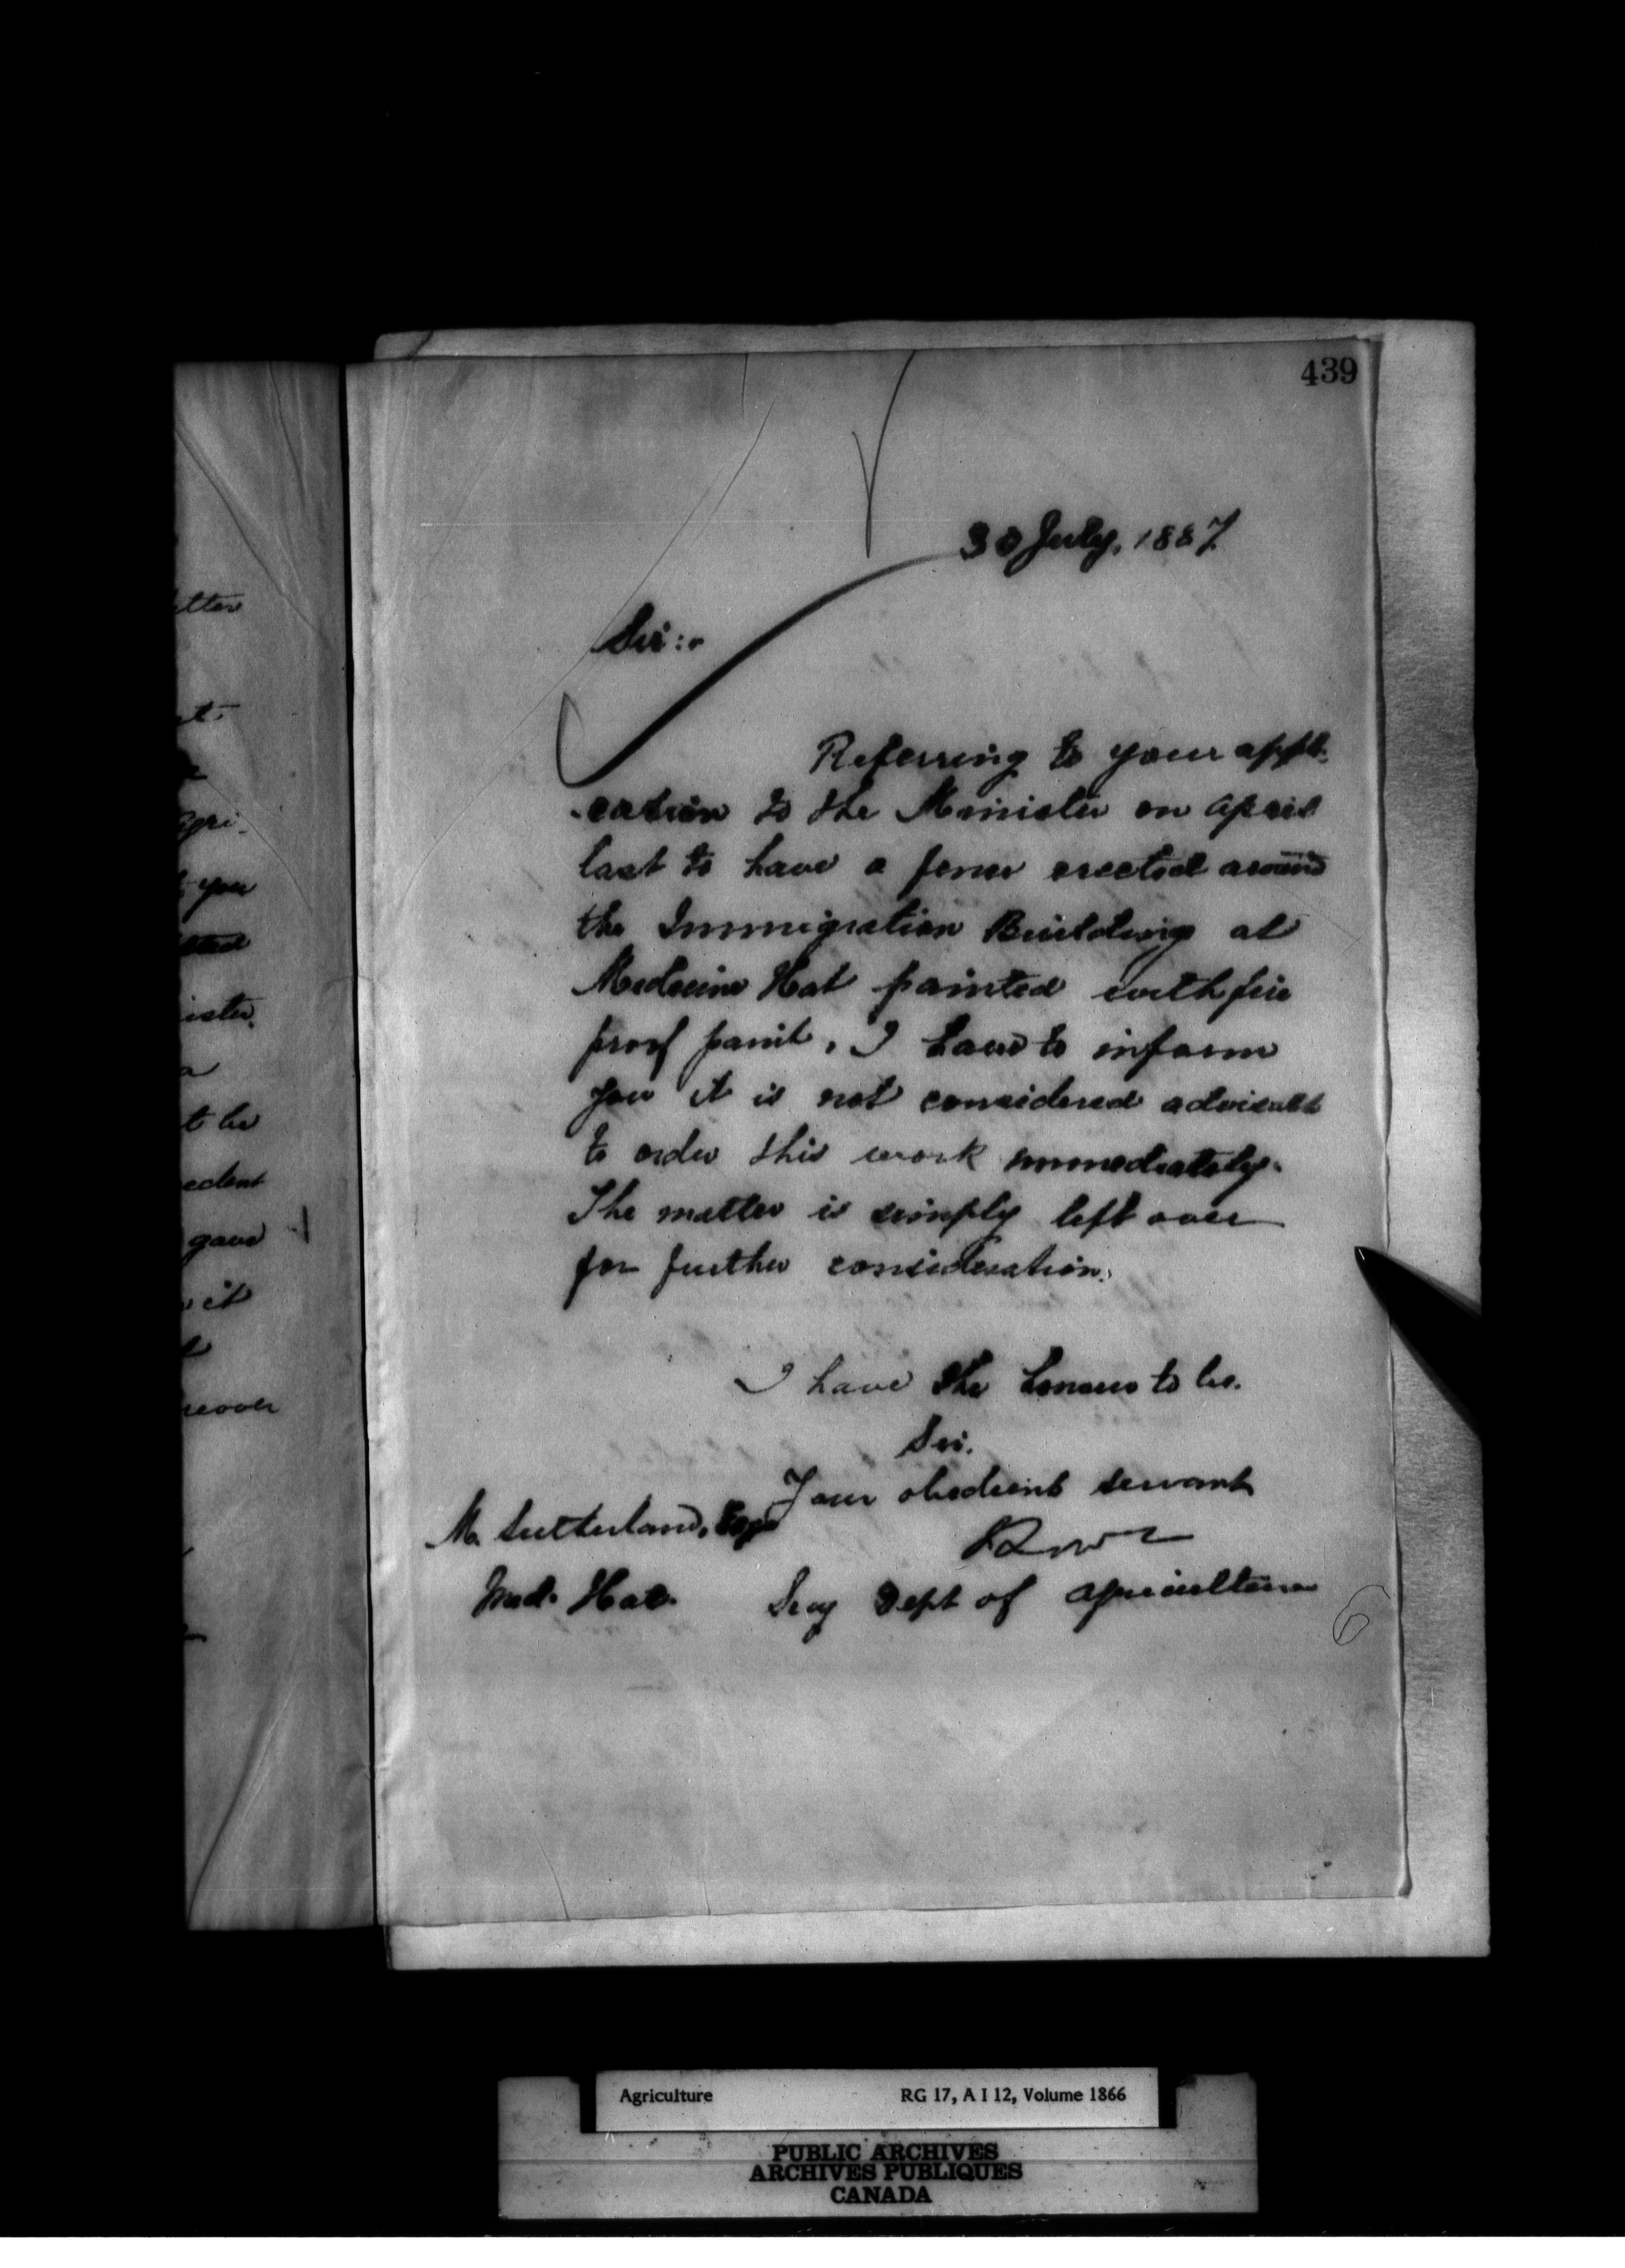 439
30 July, 1887.
Sir:-
Referring to your appli-
-cation to the Minister on April
last to have a fence erected around
the Immigration Building at
Medicine Hat painted with fire
proof paint, I have to inform
you it is not considered advisable
to order this work immediately.
The matter is simply left over
for further consideration.
I have the honour to be.
Sir.
Your obedient servant
M. Sutherland, Esq
Med. Hat.
Secy Dept of Agriculture
etter
t
Agri-
you
ister.
a
t be
edent
gave
it
reover
Agriculture RG 17, A I 12, Volume 1866
PUBLIC ARCHIVES
ARCHIVES PUBLIQUES
CANADA